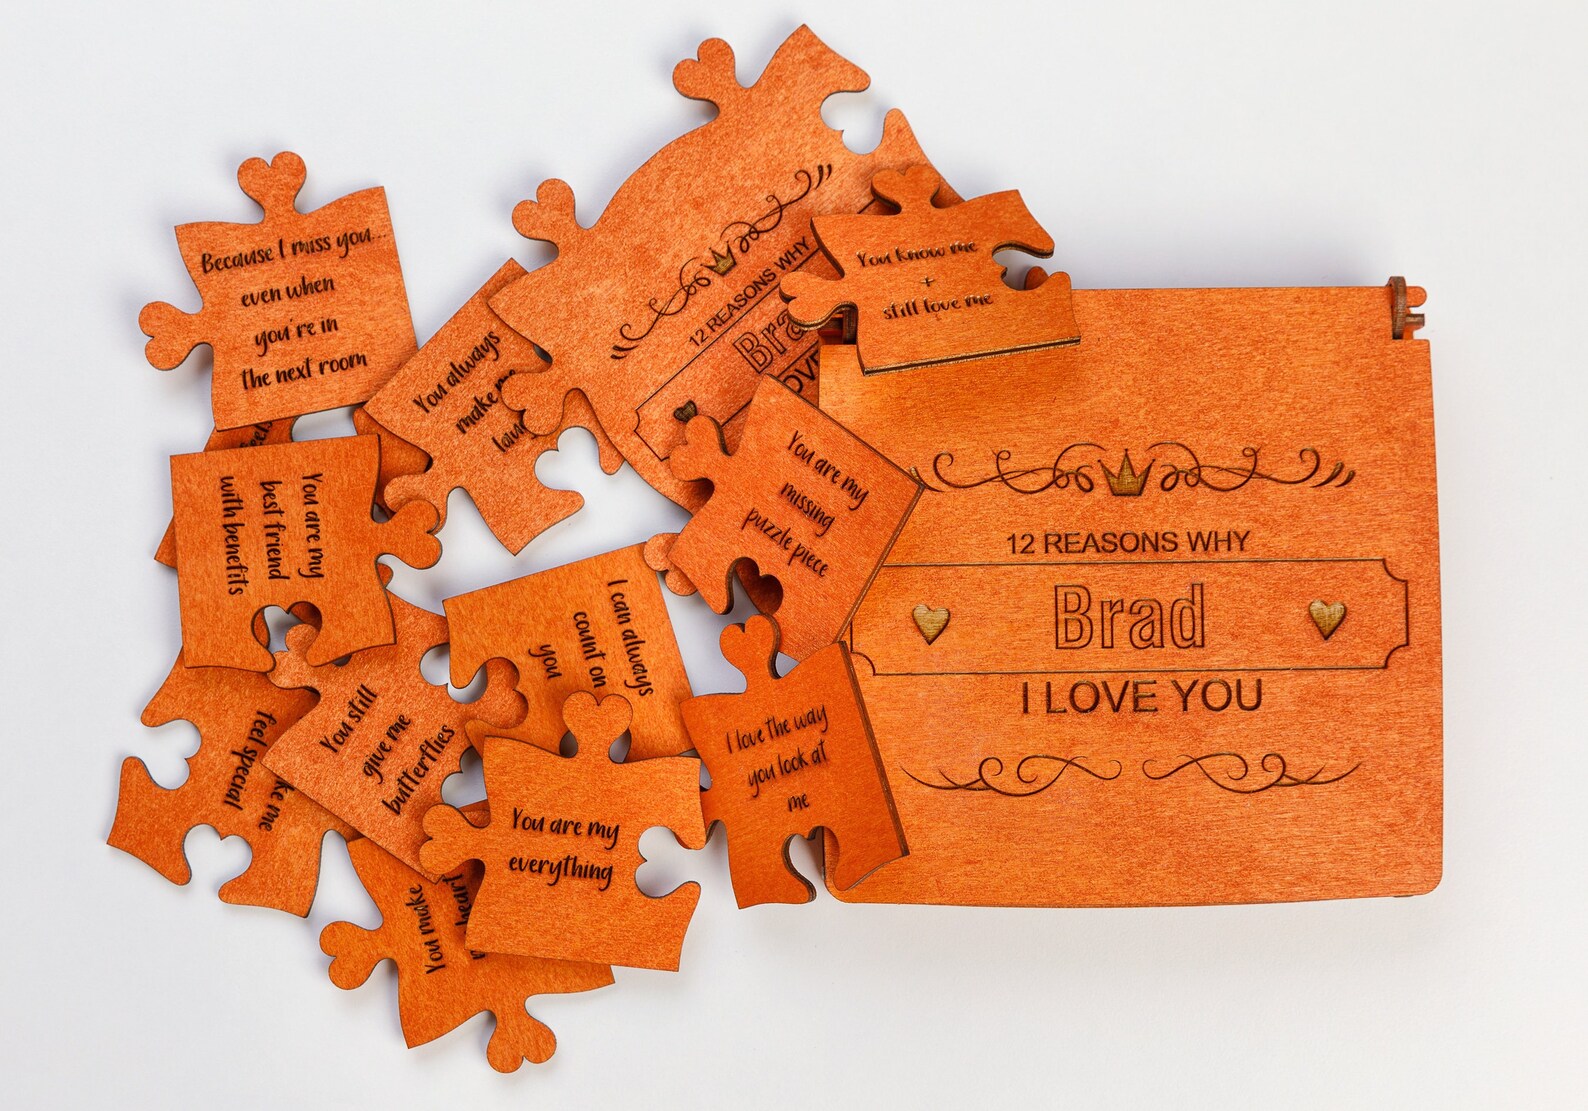 Because I miss you...
even when
you're in
the next room
You always
make me
12 REASONS WHY
You know me
+
still love me
You are my
missing
puzzle piece
You are my
best friend
with benefits
I can always
count on
you
You still
give me
butterflies
feel special
me
You are my
everything
You make
heart
I love the way
you look at
me
12 REASONS WHY
Brad
I LOVE YOU